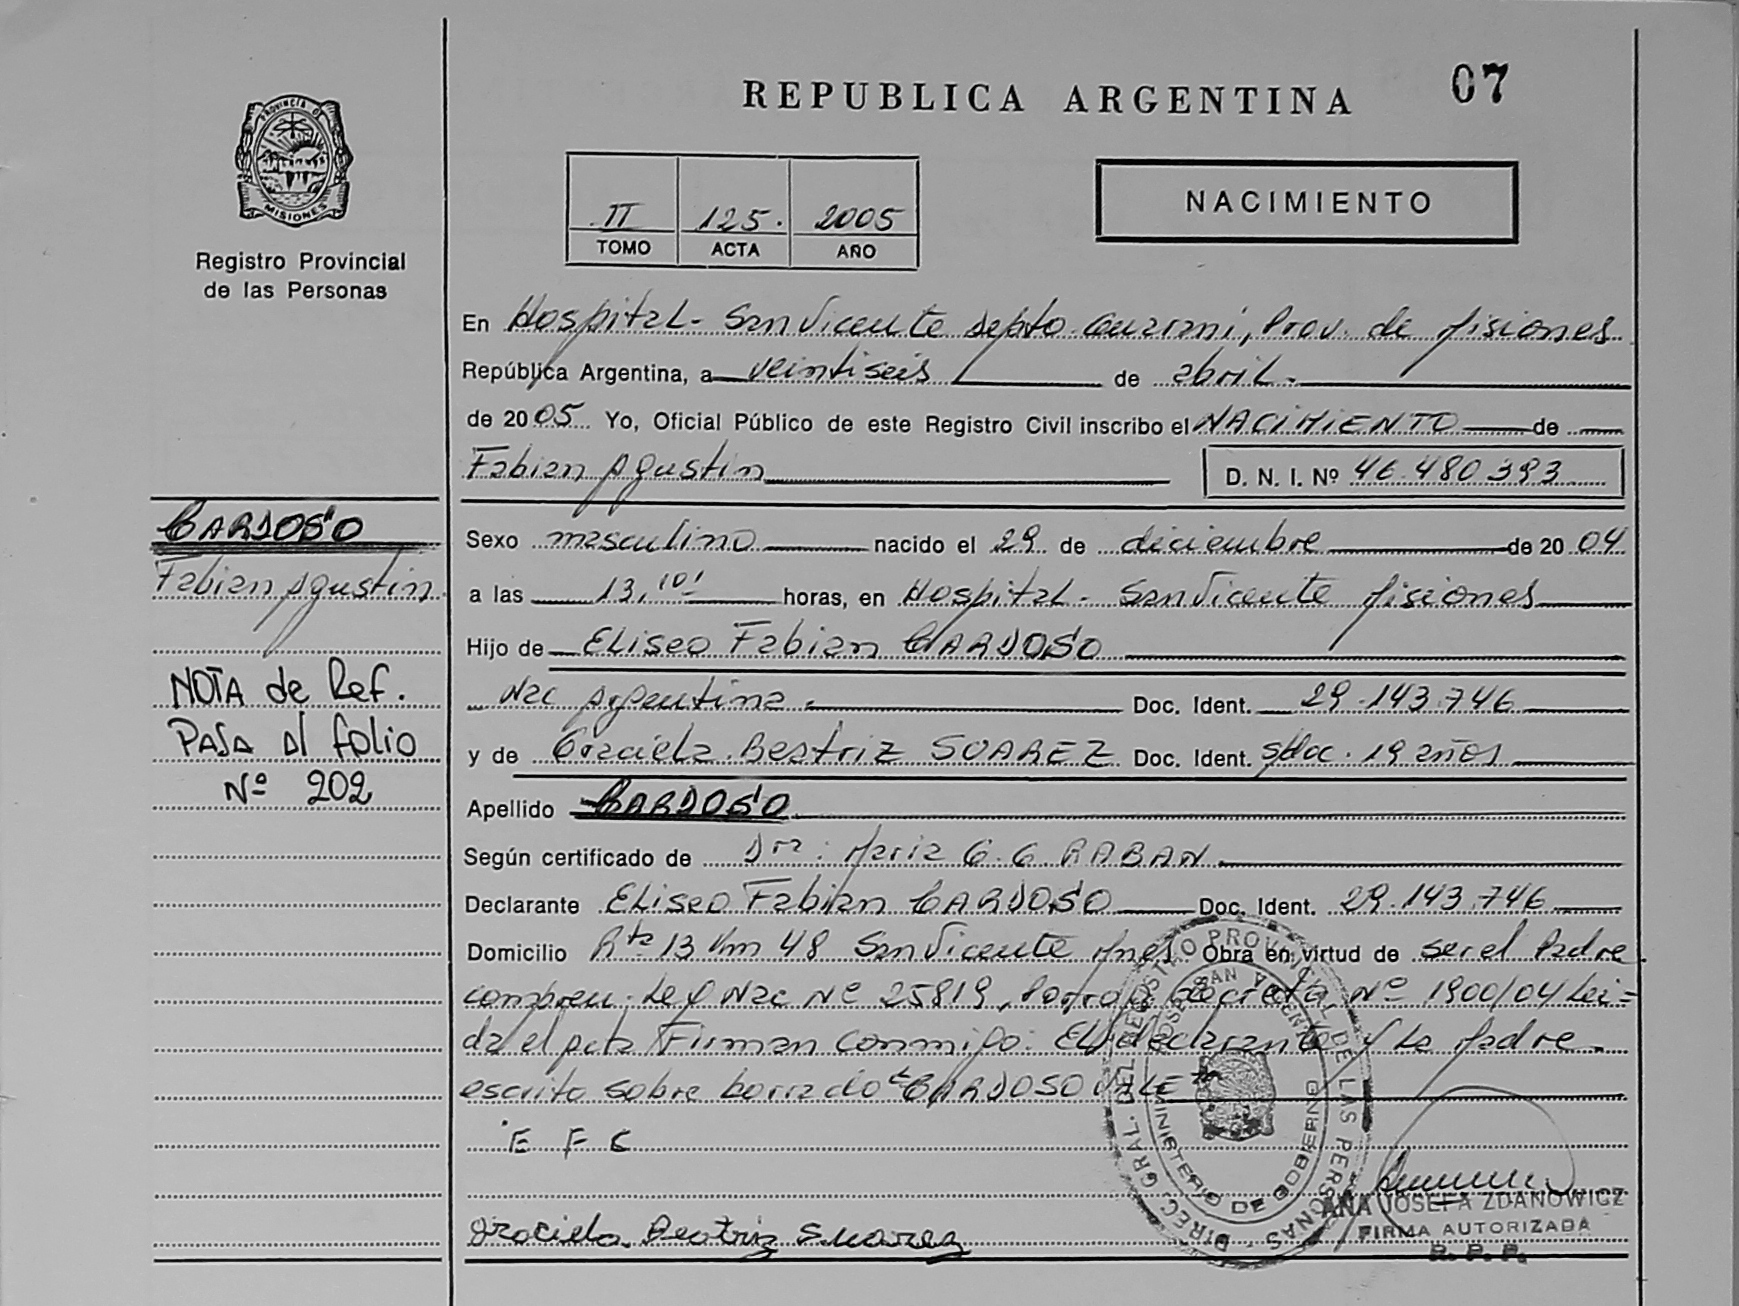 REPUBLICA ARGENTINA 07
PROVINCIA DE
MISIONES
Registro Provincial
de las Personas
II 125. 2005
TOMO ACTA AÑO
NACIMIENTO
En Hospital - San Vicente depto. Guarani, Prov. de Misiones
República Argentina, a veintiseis de abril.
de 2005. Yo, Oficial Público de este Registro Civil inscribo el NACIMIENTO de
Fabian Agustin D. N. I. Nº 46.480.393
CARDOSO
Fabian Agustin
NOTA de Ref.
PASA al folio
Nº 202
Sexo masculino nacido el 29 de diciembre de 2004
a las 13,10' horas, en Hospital - San Vicente Misiones
Hijo de Eliseo Fabian CARDOSO
Nac Argentina. Doc. Ident. 29.143.746
y de Graciela Beatriz SUAREZ Doc. Ident. s/doc. 19 años
Apellido CARDOSO
Según certificado de Dra: Maria G. G. RABAN
Declarante Eliseo Fabian CARDOSO Doc. Ident. 29.143.746
Domicilio Rta 13 Km 48 San Vicente Mnes Obra en virtud de ser el Padre
Ley Nac Nº 25819, decreto Nº 1900/04 Lei=
da el acta Firman conmigo: El declarante y La Madre
escrito sobre borrado "CARDOSO VALE"
E F C
Graciela Beatriz Suarez
DIREC. GRAL. DEL REGISTRO PROVINCIAL DE LAS PERSONAS
MINISTERIO DE GOBIERNO
ANA JOSEFA ZDANOWICZ
FIRMA AUTORIZADA
R. P. P.